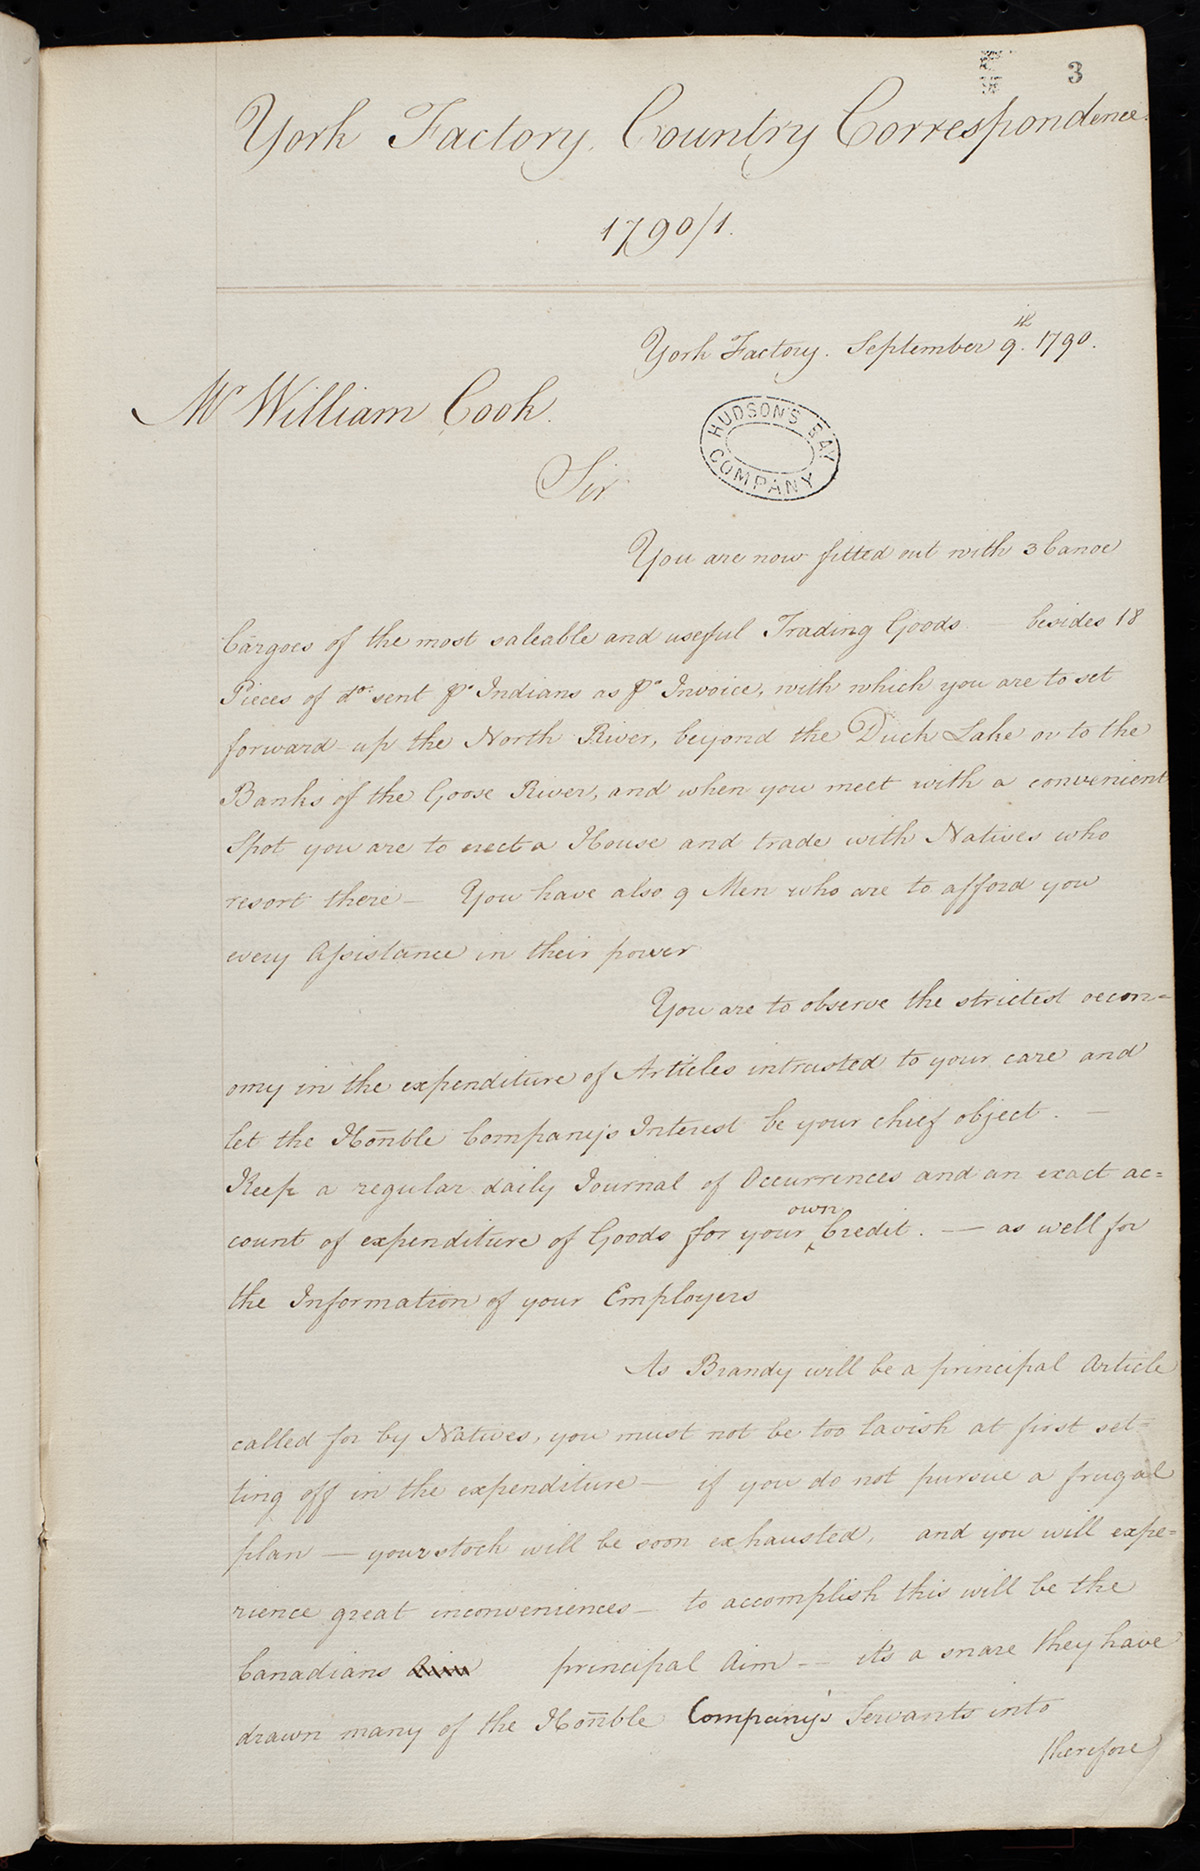 3
York Factory, Country Correspondence.
1790/1.
York Factory. September 9th. 1790.
Mr William Cook.
HUDSON'S BAY COMPANY
Sir
You are now fitted out with 3 Canoe
Cargoes of the most saleable and useful Trading Goods — besides 18
Pieces of do. sent pr. Indians as pr. Invoice, with which you are to set
forward up the North River, beyond the Duck Lake or to the
Banks of the Goose River, and when you meet with a convenient
Spot you are to erect a House and trade with Natives who
resort there — You have also 9 Men who are to afford you
every Assistance in their power
You are to observe the strictest oecon=
omy in the expenditure of Articles intrusted to your care and
let the Honble Company's Interest be your chief object. —
Keep a regular daily Journal of Occurrences and an exact ac=
count of expenditure of Goods for your own Credit. — as well for
the Information of your Employers
As Brandy will be a principal Article
called for by Natives, you must not be too lavish at first set=
ting off in the expenditure — if you do not pursue a frugal
plan — your stock will be soon exhausted, and you will expe=
rience great inconveniences — to accomplish this will be the
Canadians Aim principal Aim — it's a snare they have
drawn many of the Honble Company's Servants into
therefore